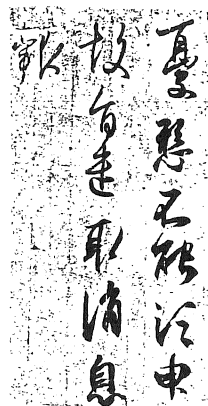 憂懸不能須申
故旨遣取消息